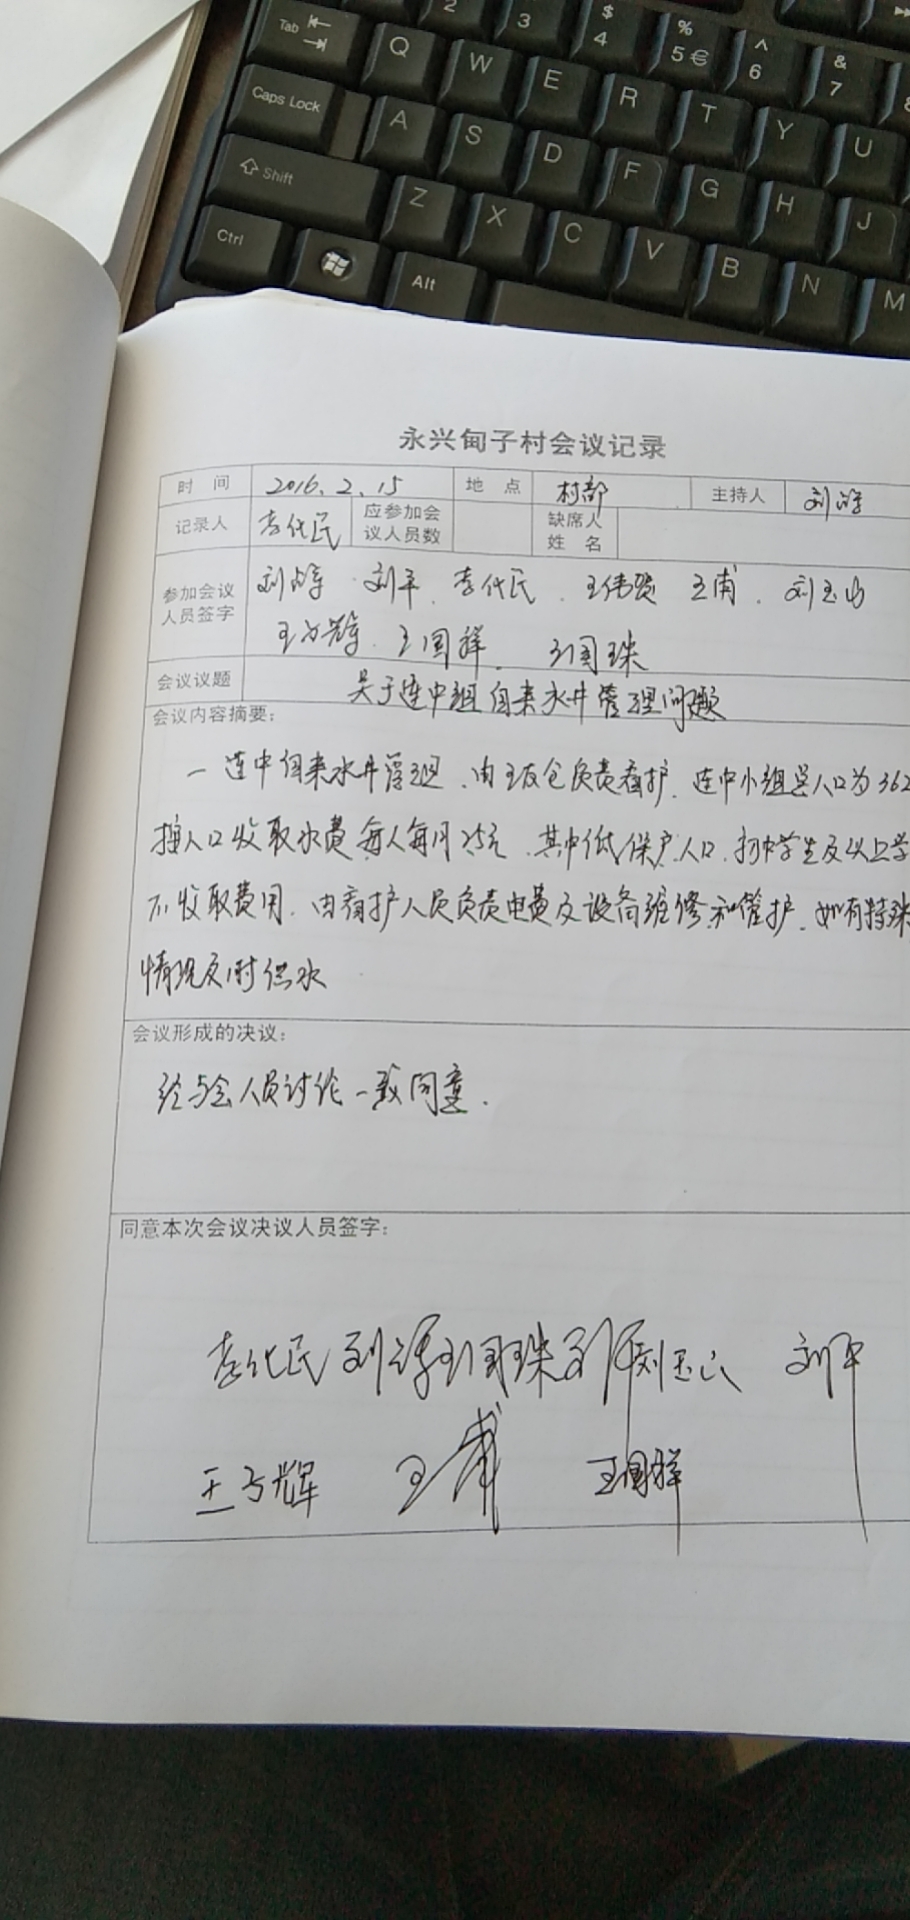 Tab
2 3 $ 4 % 5 € ^ 6 & 7
Q W E R T Y U
Caps Lock A S D F G H J
Shift Z X C V B N M
Ctrl Alt
永兴甸子村会议记录
时 间 2016.2.15 地 点 村部 主持人 刘
记录人 李代民 应参加会议人员数 缺席人姓名
参加会议人员签字 刘 刘平、李代民、王伟贤 王甫、刘玉山
王 辉、王国祥、王国珠
会议议题 关于连中组自来水井管理问题
会议内容摘要:
一 连中自来水井管理、由王 仓负责看护、连中小组总人口为362
按人口收取水费每人每月2.5元、其中低保户人口、初中学生及以上学
不收取费用、由看护人员负责电费及设备维修和管护、如有特殊
情况及时供水
会议形成的决议:
经与会人员讨论一致同意.
同意本次会议决议人员签字:
李代民 刘 王国珠 刘玉山 刘平
王 辉 王甫 王国祥